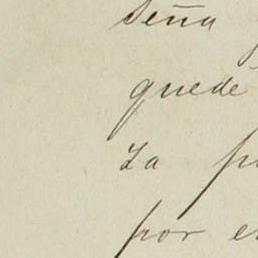 seña
quede
La p
por e